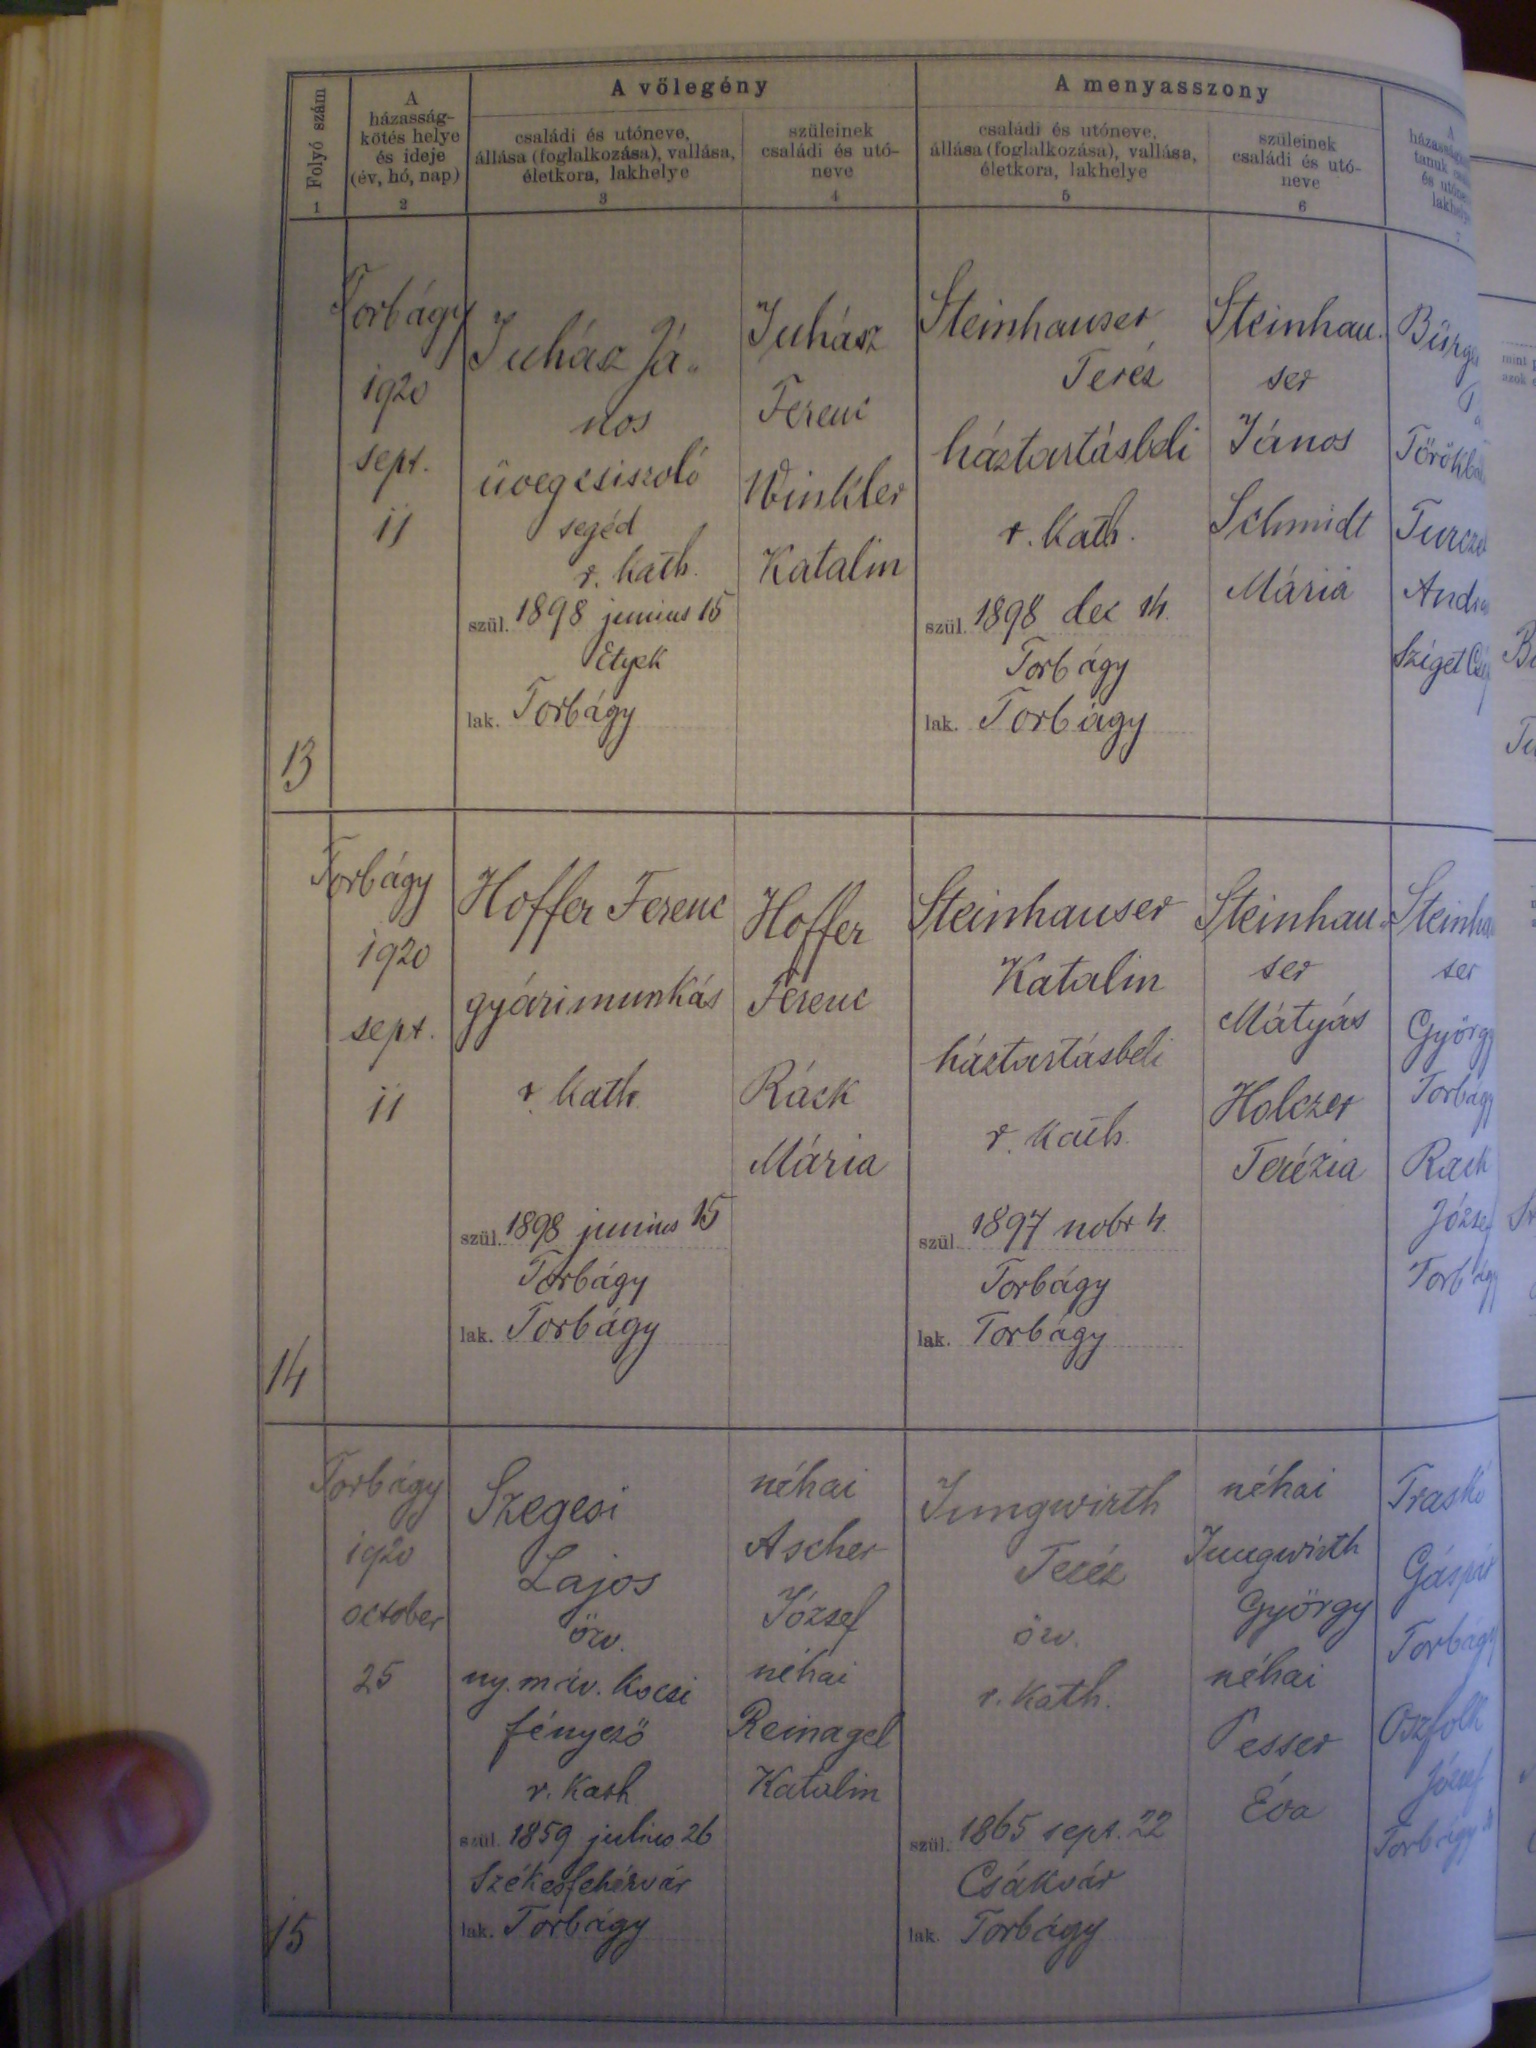 Folyó szám
1
A
házasság-
kötés helye
és ideje
(év, hó, nap)
2
A vőlegény
családi és utóneve,
állása (foglalkozása), vallása,
életkora, lakhelye
3
szüleinek
családi és utó-
neve
4
A menyasszony
családi és utóneve,
állása (foglalkozása), vallása,
életkora, lakhelye
5
szüleinek
családi és utó-
neve
6
A
7
13
Torbágy
1920
sept.
11
Juhász Já-
nos
üvegcsiszoló
segéd
r. kath.
szül. 1898 junius 15
Etyek
lak. Torbágy
Juhász
Ferenc
Winkler
Katalin
Steinhauser
Teréz
háztartásbeli
r. kath.
szül. 1898 dec 14.
Torbágy
lak. Torbágy
Steinhau-
ser
János
Schmidt
Mária
14
Torbágy
1920
sept.
11
Hoffer Ferenc
gyári munkás
r. kath
szül. 1898 junius 15
Torbágy
lak. Torbágy
Hoffer
Ferenc
Ráck
Mária
Steinhauser
Katalin
háztartásbeli
r. kath.
szül. 1897 nobr 4.
Torbágy
lak. Torbágy
Steinhau-
ser
Mátyás
Holczer
Terézia
ser
György
Torbágy
Rack
József
Torbágy
15
Torbágy
1920
october
25
Szegesi
Lajos
özv.
ny. máv. kocsi
fényező
r. kath
szül. 1859 julius 26
Székesfehérvár
lak. Torbágy
néhai
Ascher
József
néhai
Reinagel
Katalin
Jungwirth
Teréz
özv.
r. kath.
szül. 1865 sept. 22
Csákvár
lak. Torbágy
néhai
Jungwirth
György
néhai
Pesser
Éva
Traskó
Gáspár
Torbágy
Oszfolk
József
Torbágy